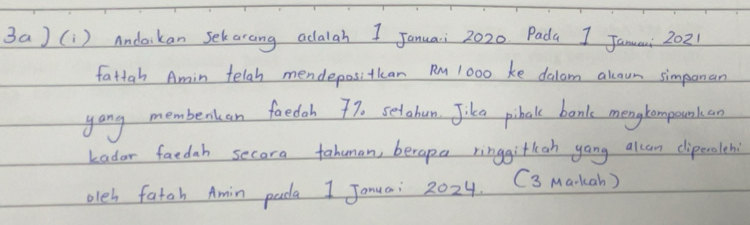 3a) (i) Andaikan sekarang adalah 1 Januari 2020. Pada 1 Januari 2021
fattah Amin telah mendepositkan RM 1000 ke dalam akaun simpanan
yang memberikan faedah 7% setahun. Jika pihak bank mengkompaunkan
kadar faedah secara tahunan, berapa ringgitkah yang akan diperolehi
oleh fatah Amin pada 1 Januari 2024. (3 Markah)